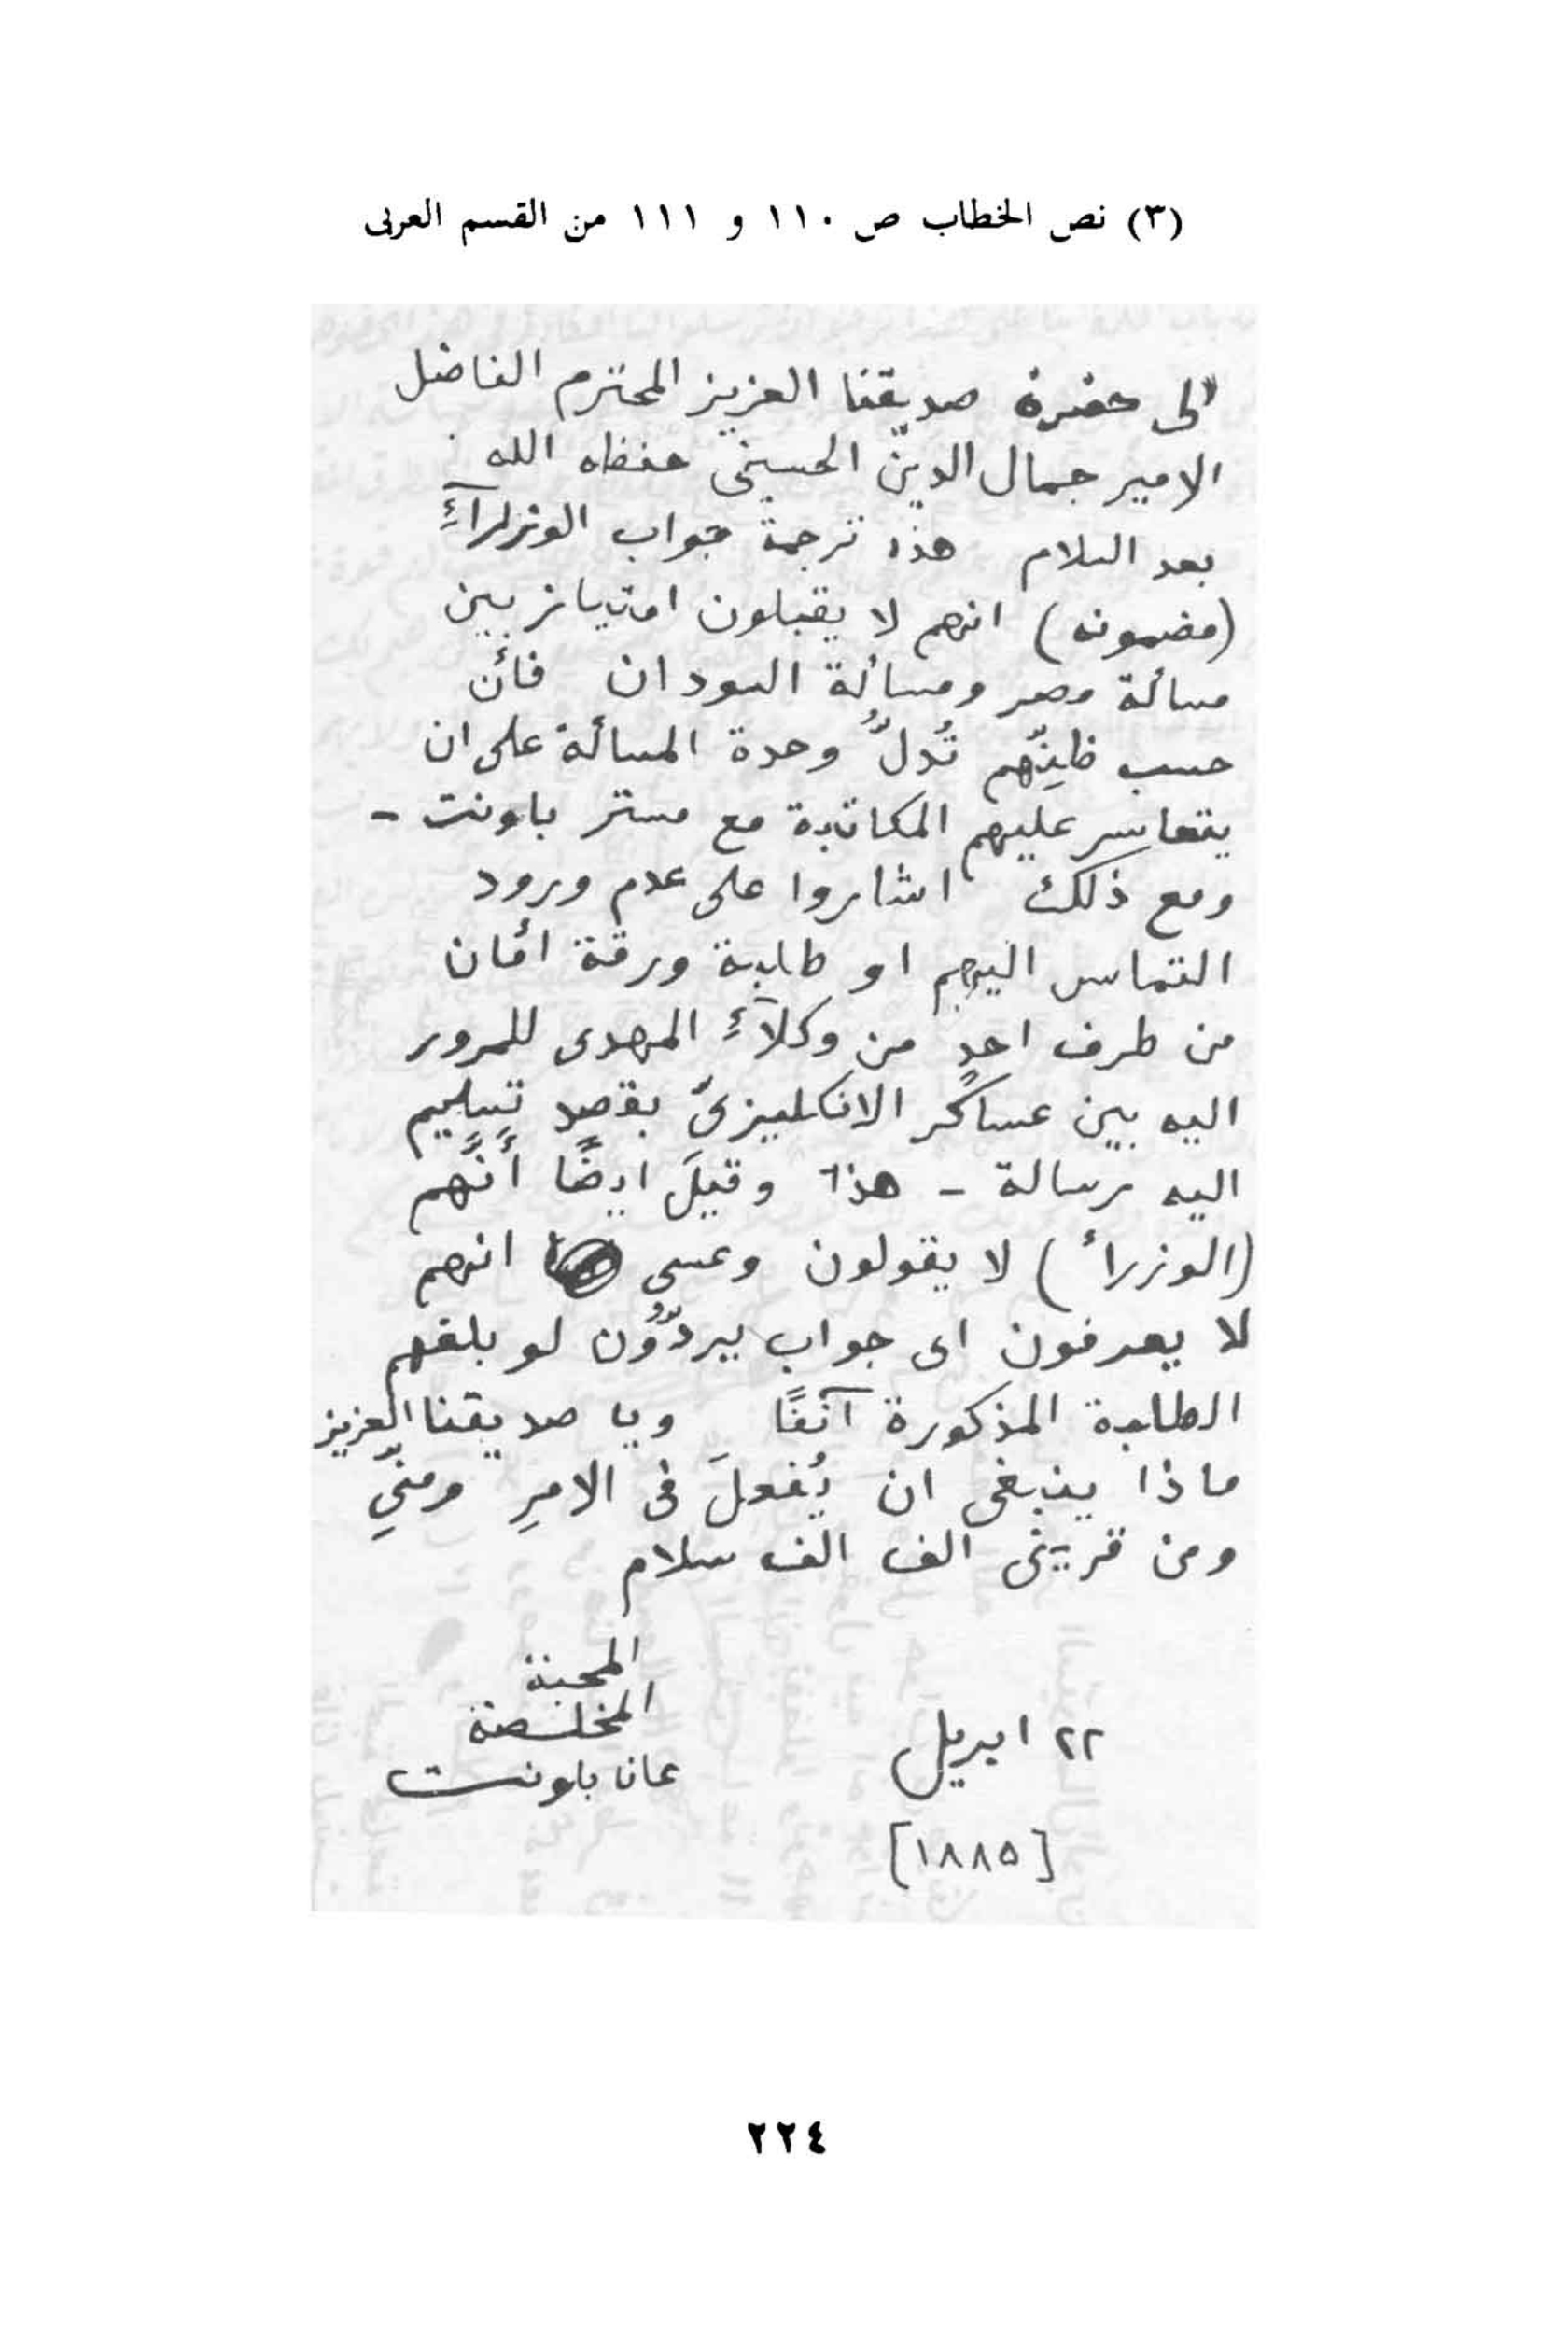 (٣) نص الخطاب ص ١١٠ و ١١١ من القسم العربى
الى حضرة صديقنا العزيز المحترم الفاضل
الامير جمال الدين الحسينى حفظه الله
بعد السلام هذه ترجمة جواب الوزرآءِ
(مضمونه) انهم لا يقبلون امتياز بين
مسألة مصر ومسألة السودان فأن
حسب ظنِّهم تُدلُّ وحدة المسألة على ان
يتعاسر عليهم المكاتبة مع مستر بلونت -
ومع ذلك اشاروا على عدم ورود
التماس اليهم او طلبة ورقة امان
من طرف احدٍ من وكلآءِ المهدى للمرور
اليه بين عساكر الانكليزىّ بقصدِ تسليم
اليه رسالة - هذا وقيلَ ايضًا أنَّهم
(الوزرأ) لا يقولون وعسى انهم
لا يعرفون اى جواب يردّون لو بلغهم
الطلبة المذكورة آنفًا ويا صديقنا العزيز
ماذا ينبغى ان يُفعلَ فى الامرِ ومنّىِ
ومن قرينى الف الف سلام
المحبة
المخلصة
٢٢ ابريل
عانا بلونت
[١٨٨٥]
٢٢٤